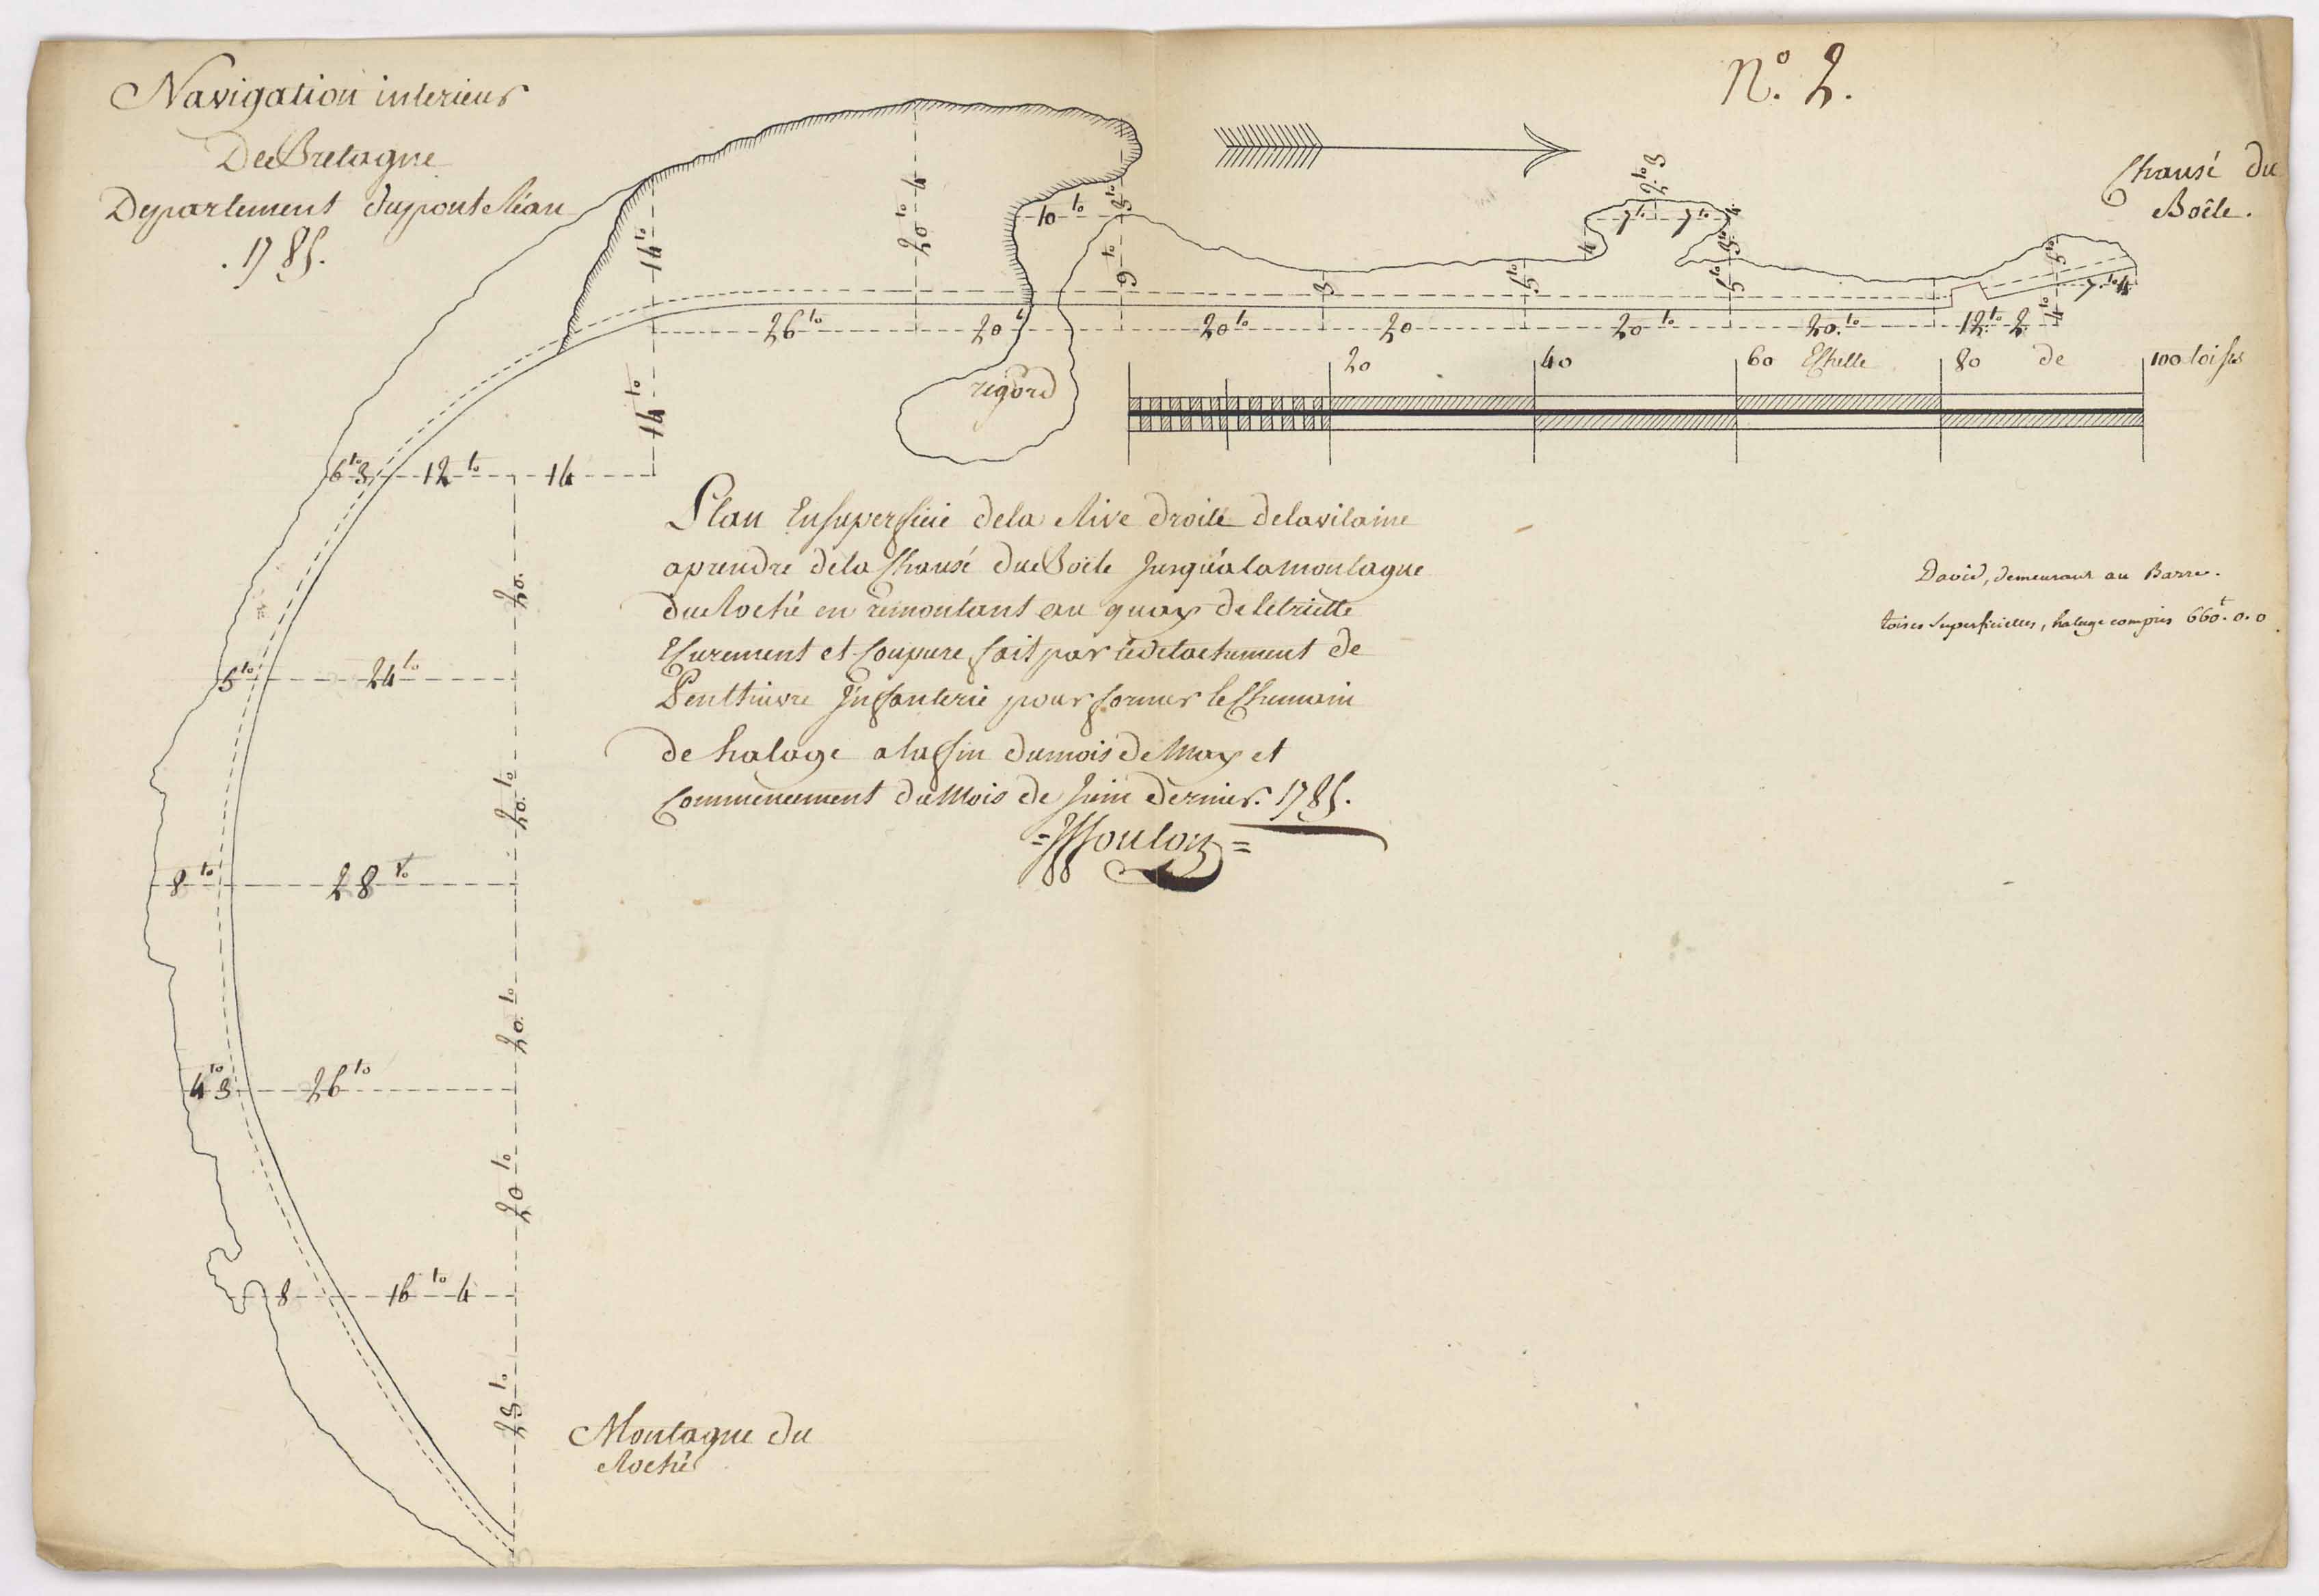 Navigation interieur
De Bretagne
Departement du pont Réan
. 1785.
N.o 2.
Chausé du
Boêle.
14to
20to 4
10 to
3to
9 to
3
5to
4
7to 7to
2to 3
5to
5to
7.to 4
4to
26to 20t 20to 20 20to 20.to 12.to 2
20 40 60 Eshelle 80 de 100 toises
regord
14to
6to 3 12to 14
Plan En superficie de la Rive droite de la vilaine
a prendre de la Chausé du Boële Jusqu'a la montagne
du Roché en remontant au quay de
Esurement et Coupure fait par le detachement de
Penthievre Infanterie pour former le Chemain
de halage a la fin du mois de May et
Commencement du Mois de Juin dernier. 1785.
= JfFoulon =
David, demeurant au Barre.
toises superficielles, halage compris 660t. 0. 0
20.
5to 24to
20.to
8to 28to
20.to
4to 3 26to
20to
8 16to 4
23to
Montagne du
Roché